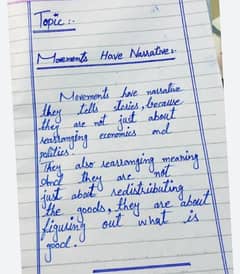 Topic:-
Movements Have Narrative:-
Movements have narrative
they tells stories, because
they are not just about
rearranging economics and
politics.
They also rearranging meaning
And they are not
just about redistributing
the goods, they are about
figuring out what is
good.